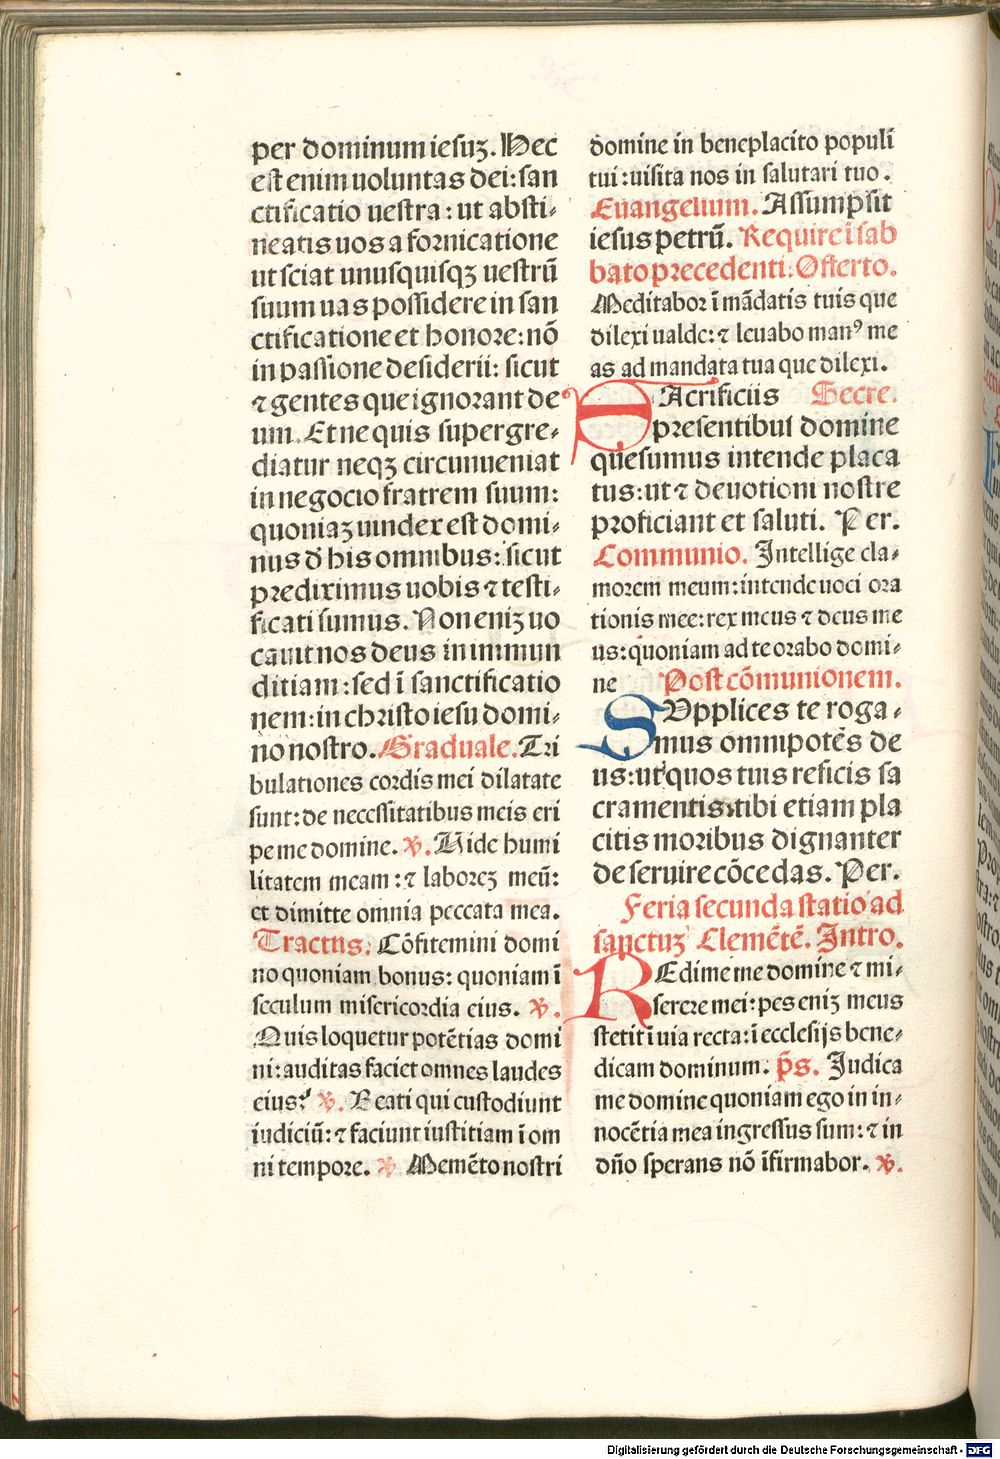 per dominum iesuʒ. Hec
est enim uoluntas dei: san
ctificatio uestra: ut absti-
neatis uos a fornicatione
ut sciat unusquisqʒ uestrū
suum uas possidere in san
ctificatione et honore: nō
in passione desiderii: sicut
⁊ gentes que ignorant de
um. Et ne quis supergre-
diatur neqʒ circunueniat
in negocio fratrem suum:
quoniaʒ uindex est domi-
nus d̄ his omnibus: sicut
prediximus uobis ⁊ testi-
ficati sumus. Non eniʒ uo
cauit nos deus in inmun
ditiam: sed ī sanctificatio
nem: in christo iesu domi-
no nostro. Graduale. Tri
bulationes cordis mei dilatate
sunt: de necessitatibus meis eri
pe me domine. v. Uide humi
litatem meam: ⁊ laboreʒ meū:
et dimitte omnia peccata mea.
Tractus. Cōfitemini domi
no quoniam bonus: quoniam ī
seculum misericordia eius. v.
Quis loquetur potētias domi
ni: auditas faciet omnes laudes
eius? v. Beati qui custodiunt
iudiciū: ⁊ faciunt iustitiam ī om
ni tempore. v. Memēto nostri
domine in beneplacito populi
tui: uisita nos in salutari tuo.
Euangelium. Assumpsit
iesus petrū. Require ī sab
bato precedenti. Offerto.
Meditabor ī mādatis tuis que
dilexi ualde: ⁊ leuabo manꝰ me
as ad mandata tua que dilexi.
SAcrificiis Secre.
presentibus domine
quesumus intende placa
tus: ut ⁊ deuotioni nostre
proficiant et saluti. Per.
Communio. Intellige cla-
morem meum: intende uoci ora
tionis mee: rex meus ⁊ deus me
us: quoniam ad te orabo domi-
ne Post cōmunionem.
SUpplices te roga-
mus omnipotēs de
us: ut quos tuis reficis sa
cramentis: tibi etiam pla
citis moribus dignanter
deseruire cōcedas. Per.
Feria secunda statio ad
sanctuʒ Clemētē. Intro.
REdime me domine ⁊ mi-
serere mei: pes eniʒ meus
stetit ī uia recta: ī ecclesijs bene-
dicam dominum. p̄s. Judica
me domine quoniam ego in in-
nocētia mea ingressus sum: ⁊ in
dño sperans nō īfirmabor. v.
Digitalisierung gefördert durch die Deutsche Forschungsgemeinschaft - DFG